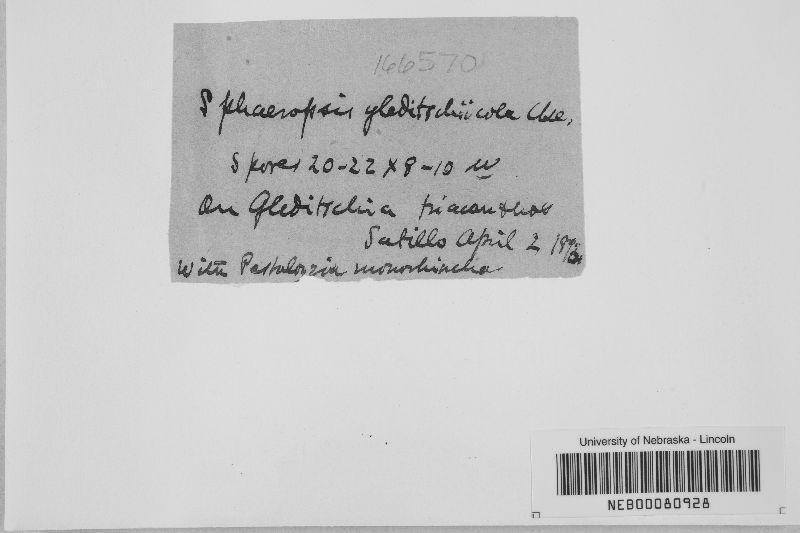 166570
Sphaeropsis gleditschiicola Cke.
Spores 20-22 x 8-10 u
On Gleditschia triacanthos
Satillo April 2 18
With Pestalozzia monorhincha
University of Nebraska - Lincoln
NEB00080928